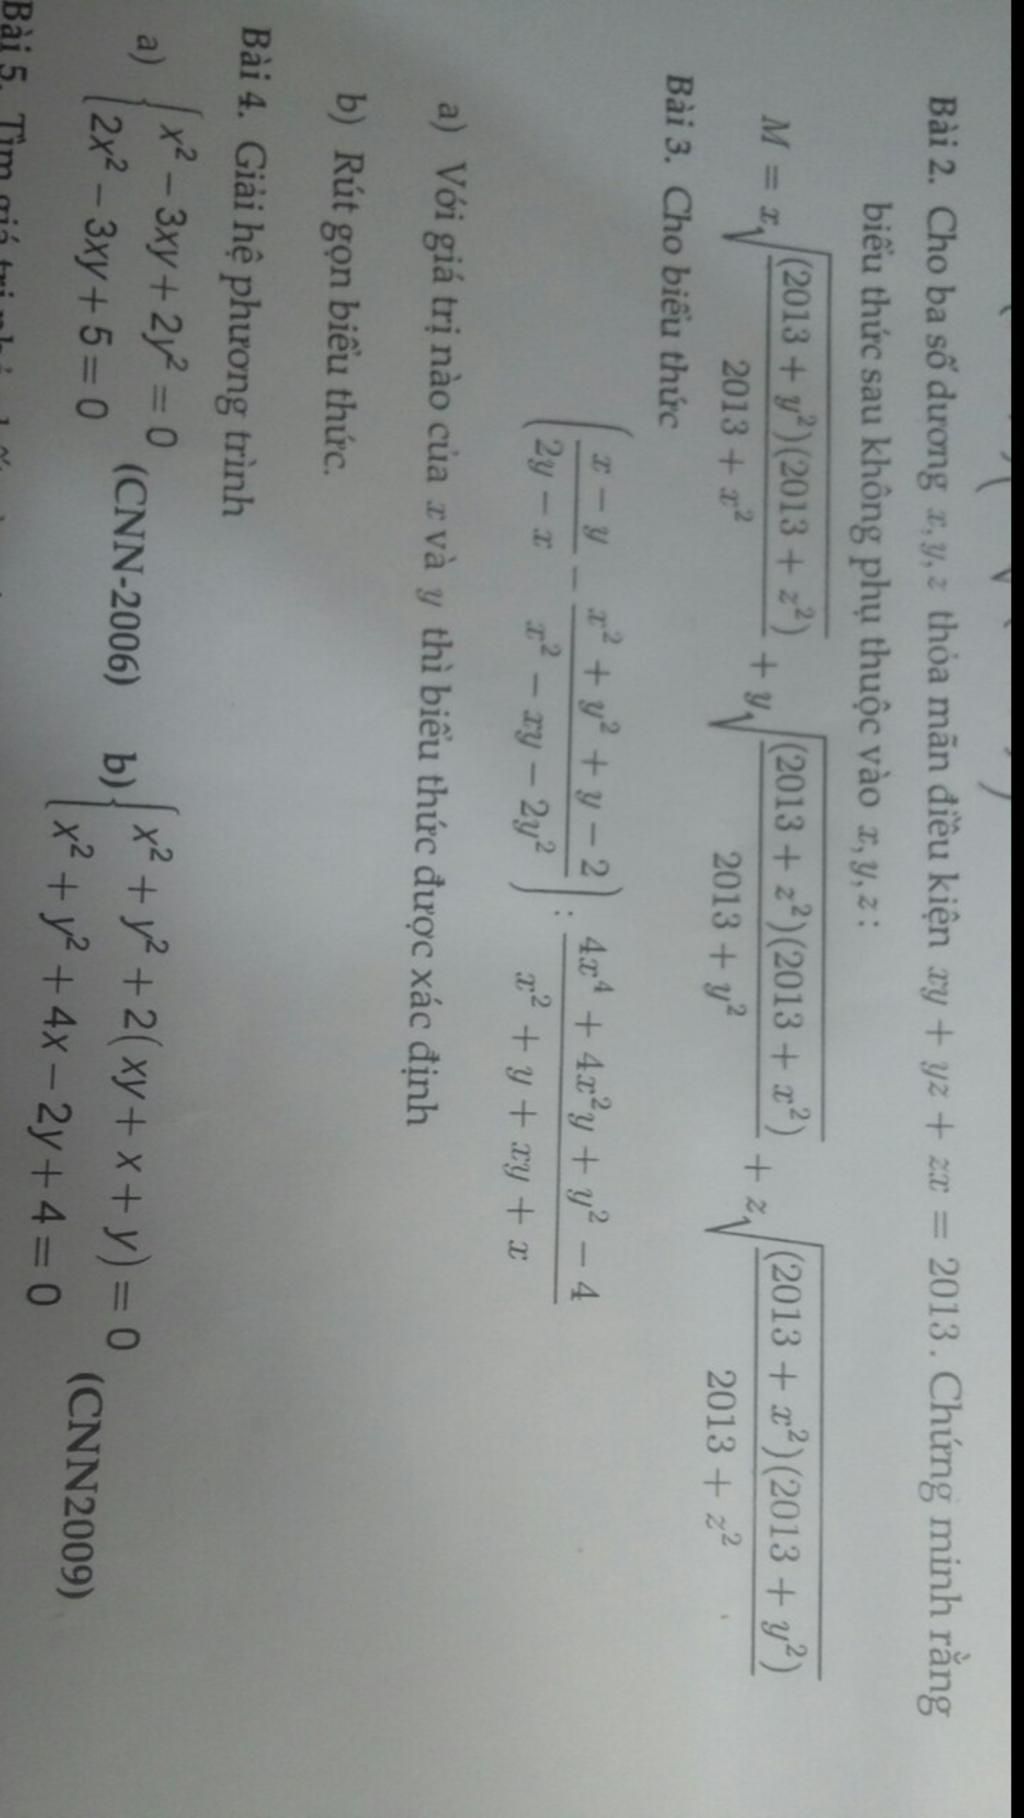 Bài 2. Cho ba số dương x, y, z thỏa mãn điều kiện xy + yz + zx = 2013. Chứng minh rằng
biểu thức sau không phụ thuộc vào x, y, z :
M = x√((2013 + y²)(2013 + z²) / (2013 + x²)) + y√((2013 + z²)(2013 + x²) / (2013 + y²)) + z√((2013 + x²)(2013 + y²) / (2013 + z²))
Bài 3. Cho biểu thức
((x − y)/(2y − x) − (x² + y² + y − 2)/(x² − xy − 2y²)) : (4x⁴ + 4x²y + y² − 4)/(x² + y + xy + x)
a) Với giá trị nào của x và y thì biểu thức được xác định
b) Rút gọn biểu thức.
Bài 4. Giải hệ phương trình
a) { x² − 3xy + 2y² = 0
2x² − 3xy + 5 = 0 (CNN-2006)
b) { x² + y² + 2(xy + x + y) = 0
x² + y² + 4x − 2y + 4 = 0 (CNN2009)
Bài 5. Tìm giá trị